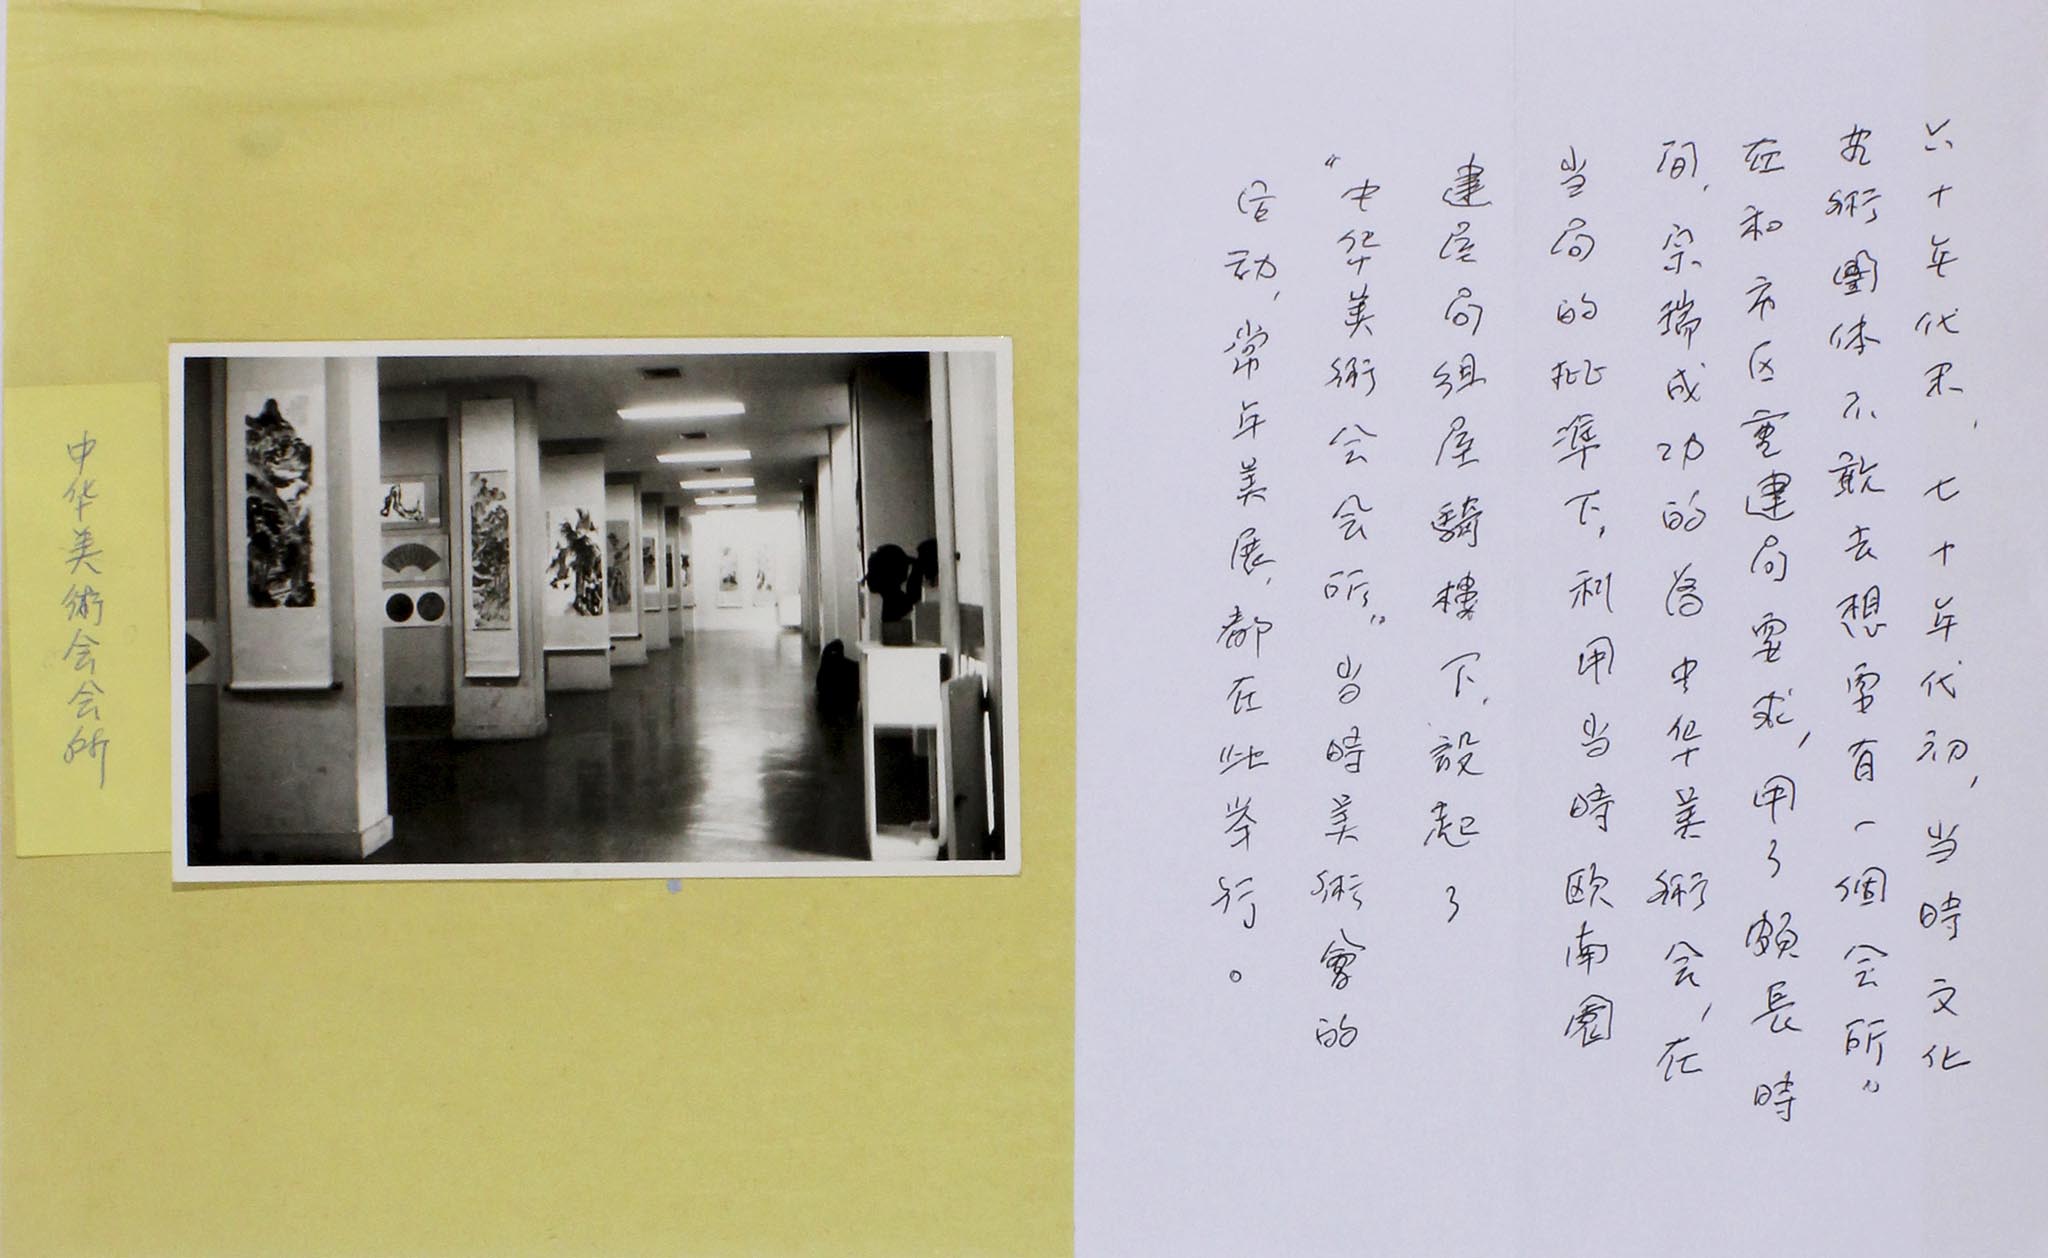 中华美術会会所
六十年代末、七十年代初，当時文化
艺術團体不敢去想要有一個会所。”
在和市区重建局要求，用了頗長時
间，宗瑞成功的為中华美術会，在
当局的批準下，利用当時欧南園
建屋局组屋騎樓下，設起了
“中华美術会会所。”当時美術會的
活动，常年美展，都在此举行。